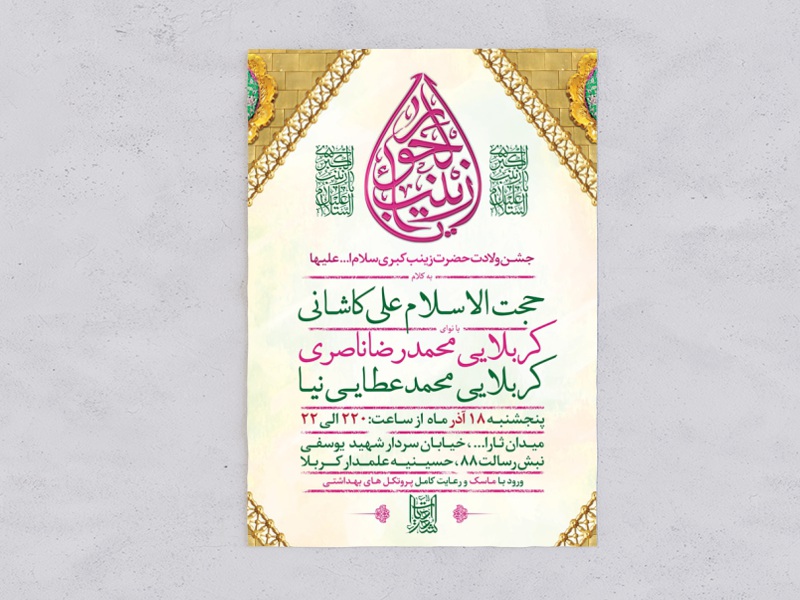 جشن ولادت حضرت زینب کبری سلام ا... علیها
به کلام
حجت الاسلام علی کاشانی
با نوای
کربلایی محمدرضا ناصری
کربلایی محمد عطایی نیا
پنجشنبه ۱۸ آذر ماه از ساعت: ۲۲۰ الی ۲۲
میدان ثارا...، خیابان سردار شهید یوسفی
نبش رسالت ۸۸، حسینیه علمدار کربلا
ورود با ماسک و رعایت کامل پروتکل های بهداشتی